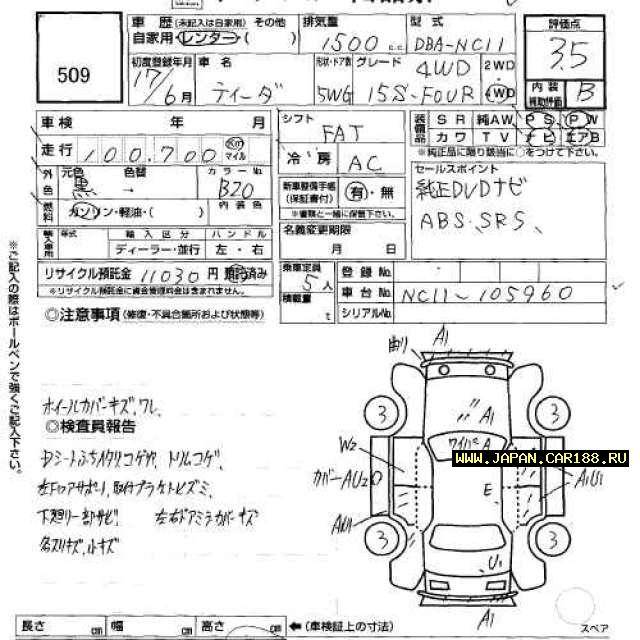 509
車歴 (未記入は自家用) その他
自家用 レンター ( )
排気量
1500 c.c.
型式
DBA-NC11
評価点
3.5
初度登録年月
17/6月
車名
ティーダ
形状・ドア数
5WG
グレード
4WD
15S-FOUR
2WD
4WD
内装
補助評価
B
車検 年 月
走行 100,700 Km マイル
外色 元色 色替
黒 →
カラーNo.
B20
燃料 ガソリン・軽油・( )
内装色
輸入車用 年式 輸入区分 ハンドル
ディーラー・並行 左・右
リサイクル預託金 11030 円 預託済み
※リサイクル預託金に資金管理料金は含まれません。
シフト
FAT
冷房
AC
新車整備手帳
(保証書付)
有・無
※書類と一緒に保管下さい。
名義変更期限
月 日
乗車定員
5人
積載量
t
装備品
SR 純AW PS PW
カワ TV ナビ エアB
※純正品に限り該当に○をつけて下さい。
セールスポイント
純正DVDナビ
ABS.SRS、
登録No.
車台No. NC11-105960
シリアルNo.
◎注意事項 (修復・不具合箇所および状態等)
ホイールカバーキズ、ワレ、
◎検査員報告
トリムコゲ、
下廻り一部サビ、 左右ドアミラーカバーキズ
小キズ
※ご記入の際はボールペンで強くご記入下さい。
曲り A1
3
3
A1
ワイパーA
W2
カバーAU2
E
A1U1
AU1
3
3
U1
A1
WWW.JAPAN.CAR188.RU
長さ cm 幅 cm 高さ cm ←(車検証上の寸法)
スペア